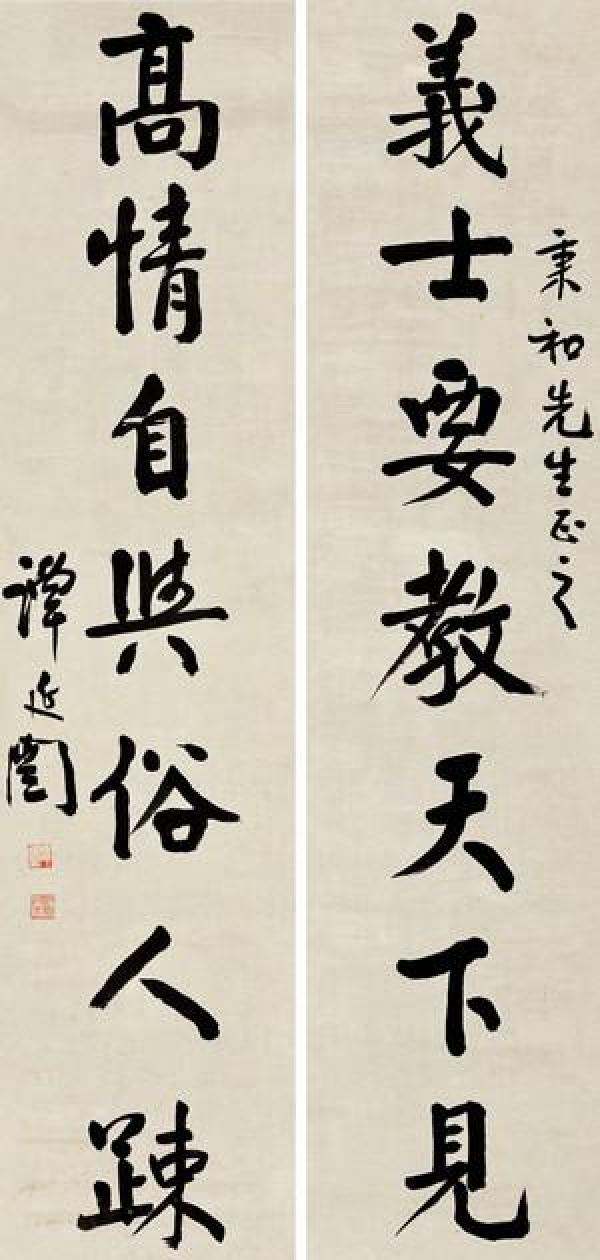 秉和先生正之
義士要教天下見
高情自與俗人踈
譚延闓